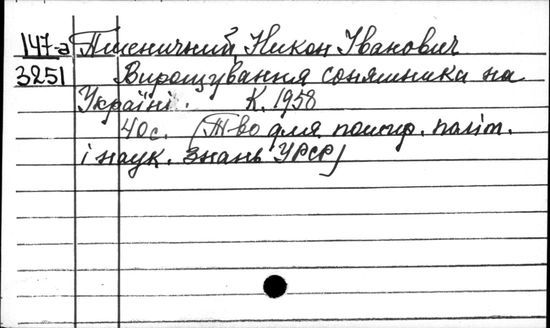 147-а Пшеничний Никон Іванович
3251 Вирощування соняшника на
Україні. К. 1958
40с. (Т-во для пошир. політ.
і наук. знань УРСР)